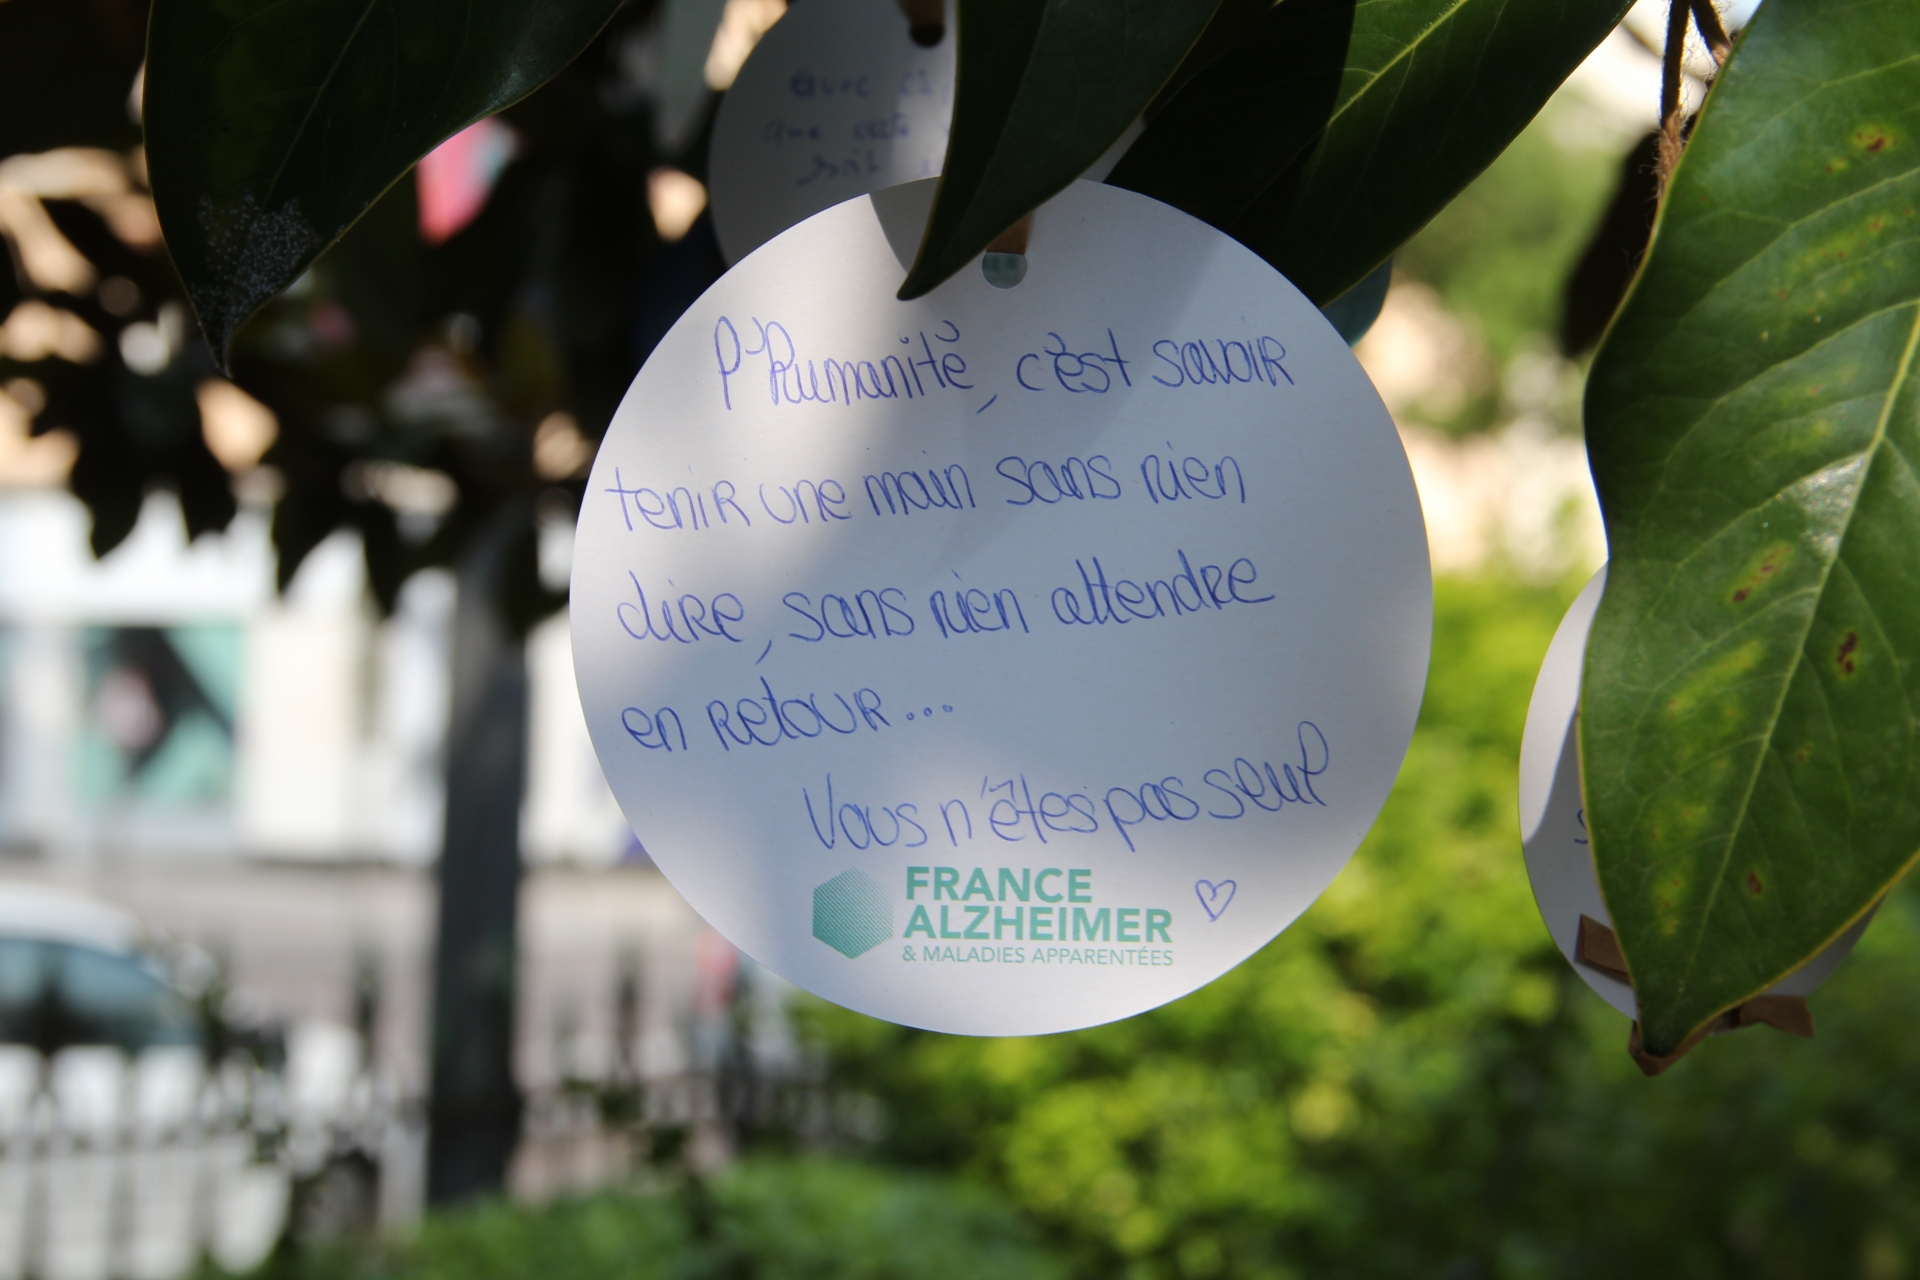 avec
que cette
soit
l'humanité, c'est savoir
tenir une main sans rien
dire, sans rien attendre
en retour...
Vous n'êtes pas seul
FRANCE
ALZHEIMER
& MALADIES APPARENTÉES